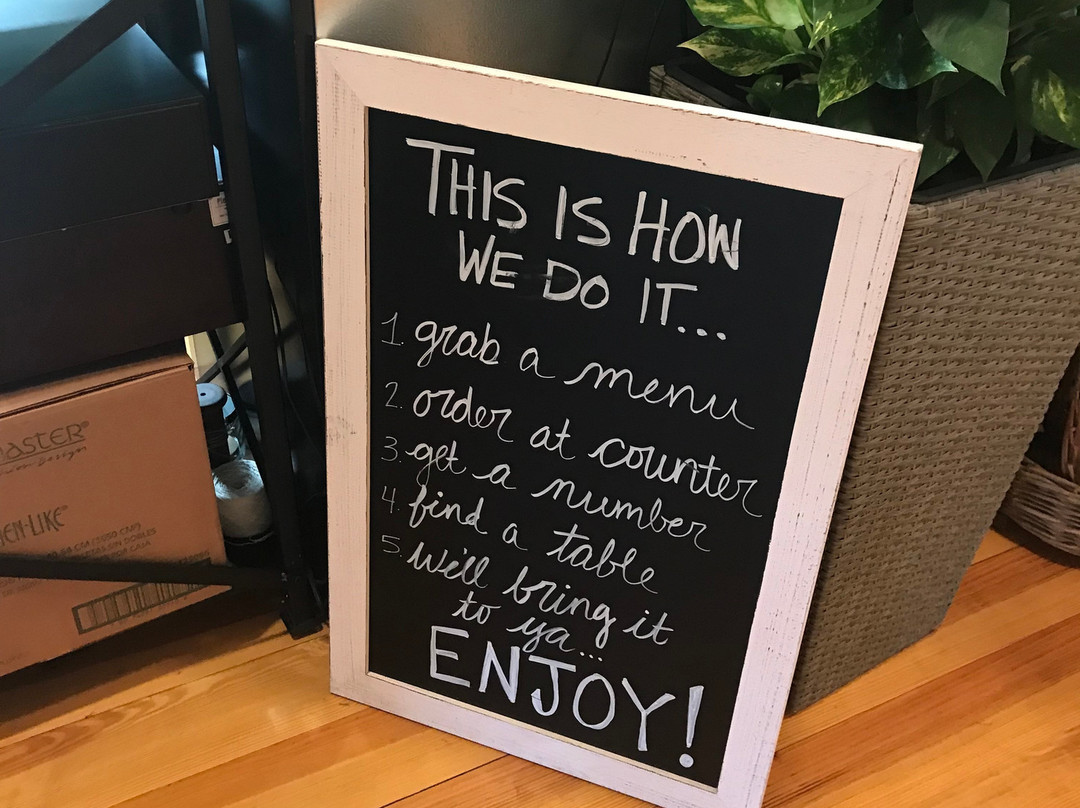 THIS IS HOW
WE DO IT...
1. grab a menu
2. order at counter
3. get a number
4. find a table
5. we'll bring it
to ya...
ENJOY!
MASTER®
EN-LIKE®